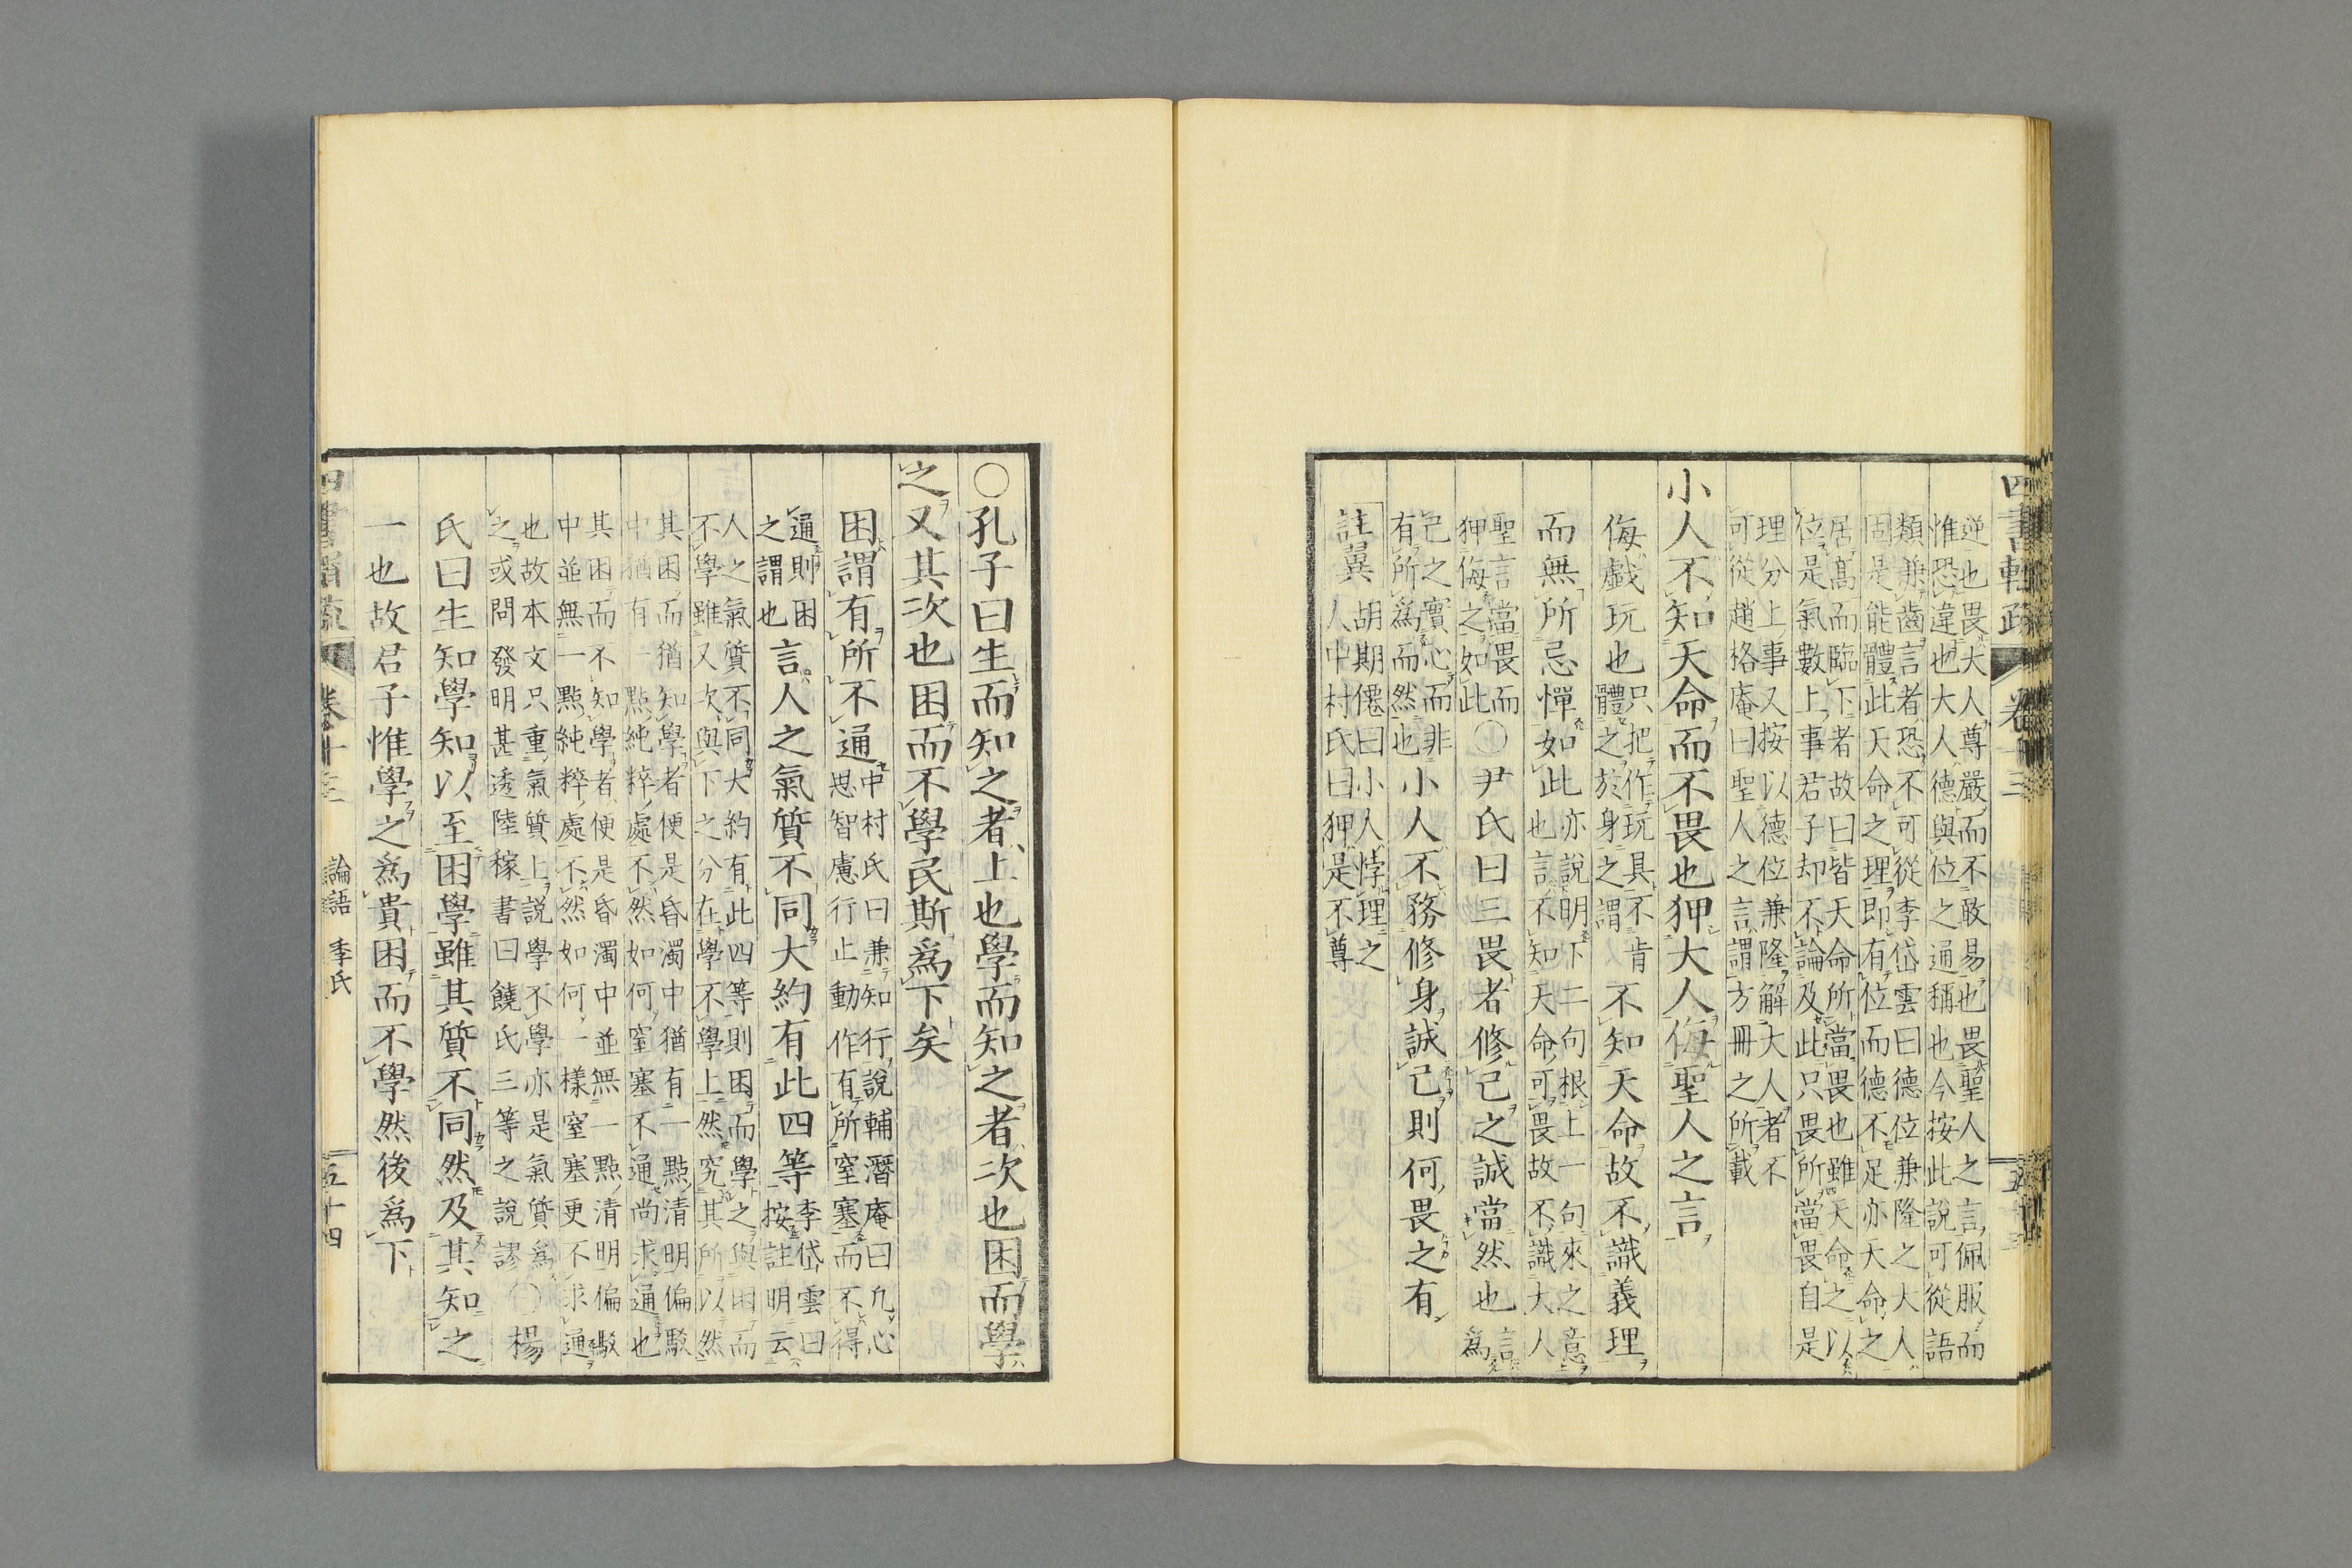 逆也畏大人尊嚴而不敢易也畏聖人之言佩服而
惟恐違也大人德與位之通稱也今按此説可從語
類兼齒言者恐不可從李岱雲曰德位兼隆之大人
固是能體此天命之理即有位而德不足亦天命之
居高而臨下者故曰皆天命所當畏也雖天命之以
位是氣數上事君子却不論及此只畏所當畏自是
理分上事又按以德位兼隆解大人者不
可從趙格庵曰聖人之言謂方冊之所載
小人不知天命而不畏也狎大人侮聖人之言
侮戲玩也
只把作玩具不肯
體之於身之謂
不知天命故不識義理
而無所忌憚如此
亦説明下二句根上一句來之意
也言不知天命可畏故不識大人
聖言當畏而
狎侮之如此
〇尹氏曰三畏者修己之誠當然也
言
爲
己之實心而非
有所爲而然也
小人不務修身誠己則何畏之有
註翼
胡期僊曰小人悖理之
人中村氏曰狎是不尊
〇孔子曰生而知之者上也學而知之者次也困而學
之又其次也困而不學民斯爲下矣
困謂有所不通
中村氏曰兼知行說輔潛庵曰凡心
思智慮行止動作有所窒塞而不得
通則困
之謂也
言人之氣質不同大約有此四等
李岱雲曰
按註明云
人之氣質不同大約有此四等則困而學之與困而
不學雖又次與下之分在學不學上然究其所以然
其困而猶知學者便是昏濁中猶有一點清明偏駁
中猶有一點純粹處不然如何窒塞不通尚求通也
其困而不知學者便是昏濁中並無一點清明偏駁
中並無一點純粹處不然如何一樣窒塞更不求通
也故本文只重氣質上説學不學亦是氣質爲
之或問發明甚透陸稼書曰饒氏三等之說謬
〇楊
氏曰生知學知以至困學雖其質不同然及其知之
一也故君子惟學之爲貴困而不學然後爲下
卷十三
論語 季氏
五十四